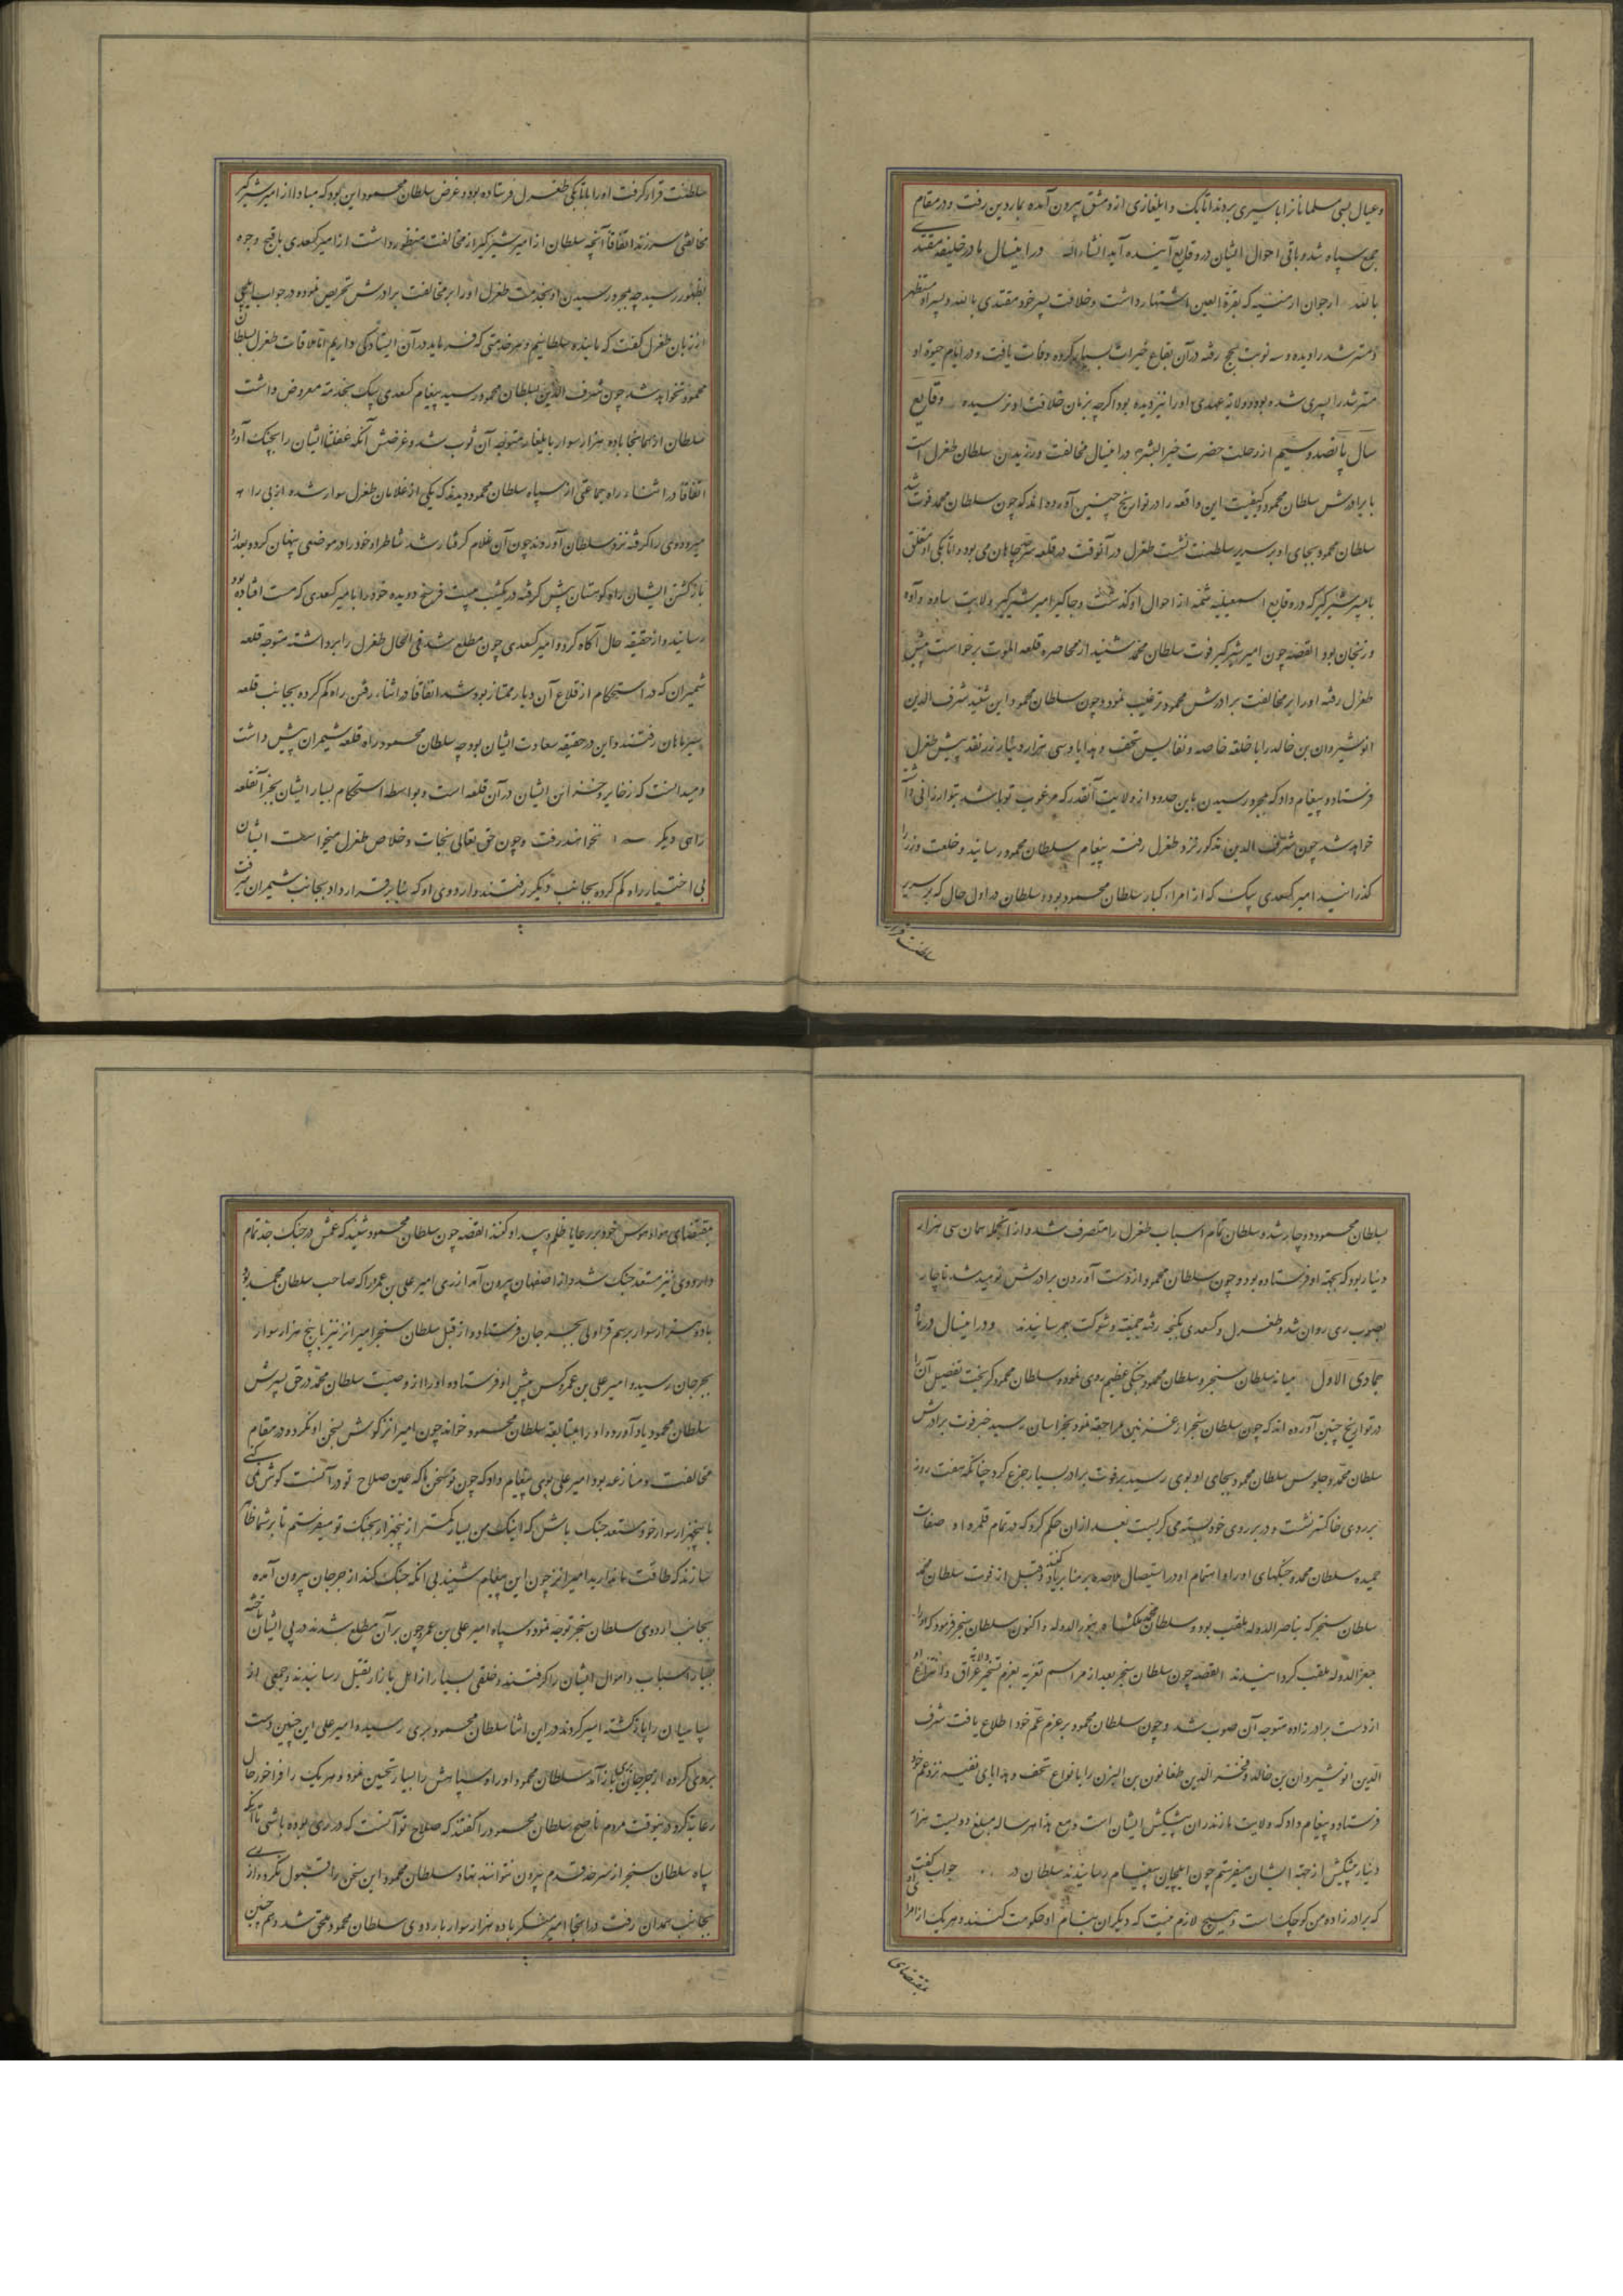 و عیال بسی مسلمانانرا باسیری بردند اتابک و ایلغازی از دمشق بیرون آمده بماردین رفت و در مقام
جمع سپاه شد و باقی احوال ایشان در وقایع آینده آید انشاءالله درینسال مادر خلیفه مقتدی
بالله ارجوان ارمنیه که بقرة العین اشتهار داشت و خلافت پسر خود مقتدی بالله و پسر او مستظهر
و مسترشد را دیده و سه نوبت بحج رفته در آن بقاع خیرات بسیار کرده وفات یافت و در ایام حیوة او
مسترشد را پسری شده بود و ولایة عهدی او را نیز دیده بود اگرچه بزمان خلافت او نرسیده وقایع
سال پانصد و سیم از رحلت حضرت خیر البشر درینسال مخالفت ورزیدن سلطان طغرل است
با برادرش سلطان محمود و کیفیت این واقعه را در تواریخ چنین آورده اند که چون سلطان محمد فوت شد
سلطان محمود بجای او بر سریر سلطنت نشست طغرل در آنوقت در قلعه سرجاهان می بود و اتابکی او متعلق
بامیر شیرگیر که در وقایع اسمعیلیه شمه از احوال او گذشت و جاگیر امیر شیرگیر ولایت ساوه و آوه
و زنجان بود القصه چون امیر شیرگیر فوت سلطان محمد شنید از محاصره قلعه الموت برخواست پیش
طغرل رفته او را بر مخالفت برادرش محمود ترغیب نمود و چون سلطان محمود این شنید شرف الدین
انوشیروان بن خالد را با خلعه خاصه و نفایس تحف و هدایا و سی هزار دینار زر نقد پیش طغرل
فرستاد و پیغام داد که بمجرد رسیدن باین حدود از ولایت آنقدر که مرغوب تو باشد بتو ارزانی داشته
خواهد شد چون شرف الدین مذکور نزد طغرل رفته پیغام سلطان محمود رسانید و خلعت و زر را
گذرانید امیر کسعدی بیک که از امراء کبار سلطان محمود بود و سلطان در اول حال که بر سریر
سلطنت قرار
سلطنت قرار گرفت او را باتابکی طغرل فرستاده بود و غرض سلطان محمود این بود که مبادا از امیر شیرگیر
مخالفتی سرزند اتفاقا آنچه سلطان از امیر شیرگیر از مخالفت منظور داشت از امیر کسعدی باقبح وجوه
بظهور رسید چه بمجرد رسیدن او بخدمت طغرل او را بر مخالفت برادرش تحریص نموده در جواب ایلچی
از زبان طغرل گفت که ما بنده سلطانیم و هر خدمتی که فرماید در آن ایستادگی داریم اما ملاقات طغرل سلطان
محمود نخواهد شد چون شرف الدین سلطان محمود رسید پیغام کسعدی بیک بخدمته معروض داشت
سلطان از همانجا با ده هزار سوار بایلغار متوجه آن صوب شد و غرضش آنکه غفلتا ایشان را بچنک آورد
اتفاقا در اثناء راه جماعتی از سپاه سلطان محمود دیدند که یکی از غلامان طغرل سوار شده از بی راه
میرود وی را گرفته نزد سلطان آوردند چون آن غلام گرفتار شد شاطر او خود را در موضعی پنهان کرد و بعد از
بازگشتن ایشان راه کوهستان پیش گرفته در یکشب بیست فرسخ دویده خود را بامیر کسعدی که مست افتاده بود
رسانید و از حقیقه حال آگاه کرد و امیر کسعدی چون مطلع شد فی الحال طغرل را برداشته متوجه قلعه
شمیران که در استحکام از قلاع آن دیار ممتاز بود شد اتفاقا در اثناء رفتن راه گم کرده بجانب قلعه
سرجاهان رفتند و این در حقیقه سعادت ایشان بود چه سلطان محمود راه قلعه شمیران پیش داشت
و میدانست که ذخایر و خزائن ایشان در آن قلعه است و بواسطه استحکام بسیار ایشان بجز آنقلعه
راهی دیگر نخواهند رفت و چون حق تعالی نجات و خلاص طغرل میخواست ایشان
بی اختیار راه گم کرده بجانب دیگر رفتند و اردوی او که بنابر قرارداد بجانب شمیران میرفت
بسلطان محمود دوچار شد و سلطان تمام اسباب طغرل را متصرف شد و از آنجمله همان سی هزار
دینار بود که بجهة او فرستاده بود و چون سلطان محمود از دست آوردن برادرش نومید شد ناچار
بصوب ری روان شد و طغرل و کسعدی بگنجه رفته جمعیت و شوکت بهم رسانیدند و درینسال در ماه
جمادی الاول میانه سلطان سنجر و سلطان محمود جنگی عظیم روی نموده و سلطان محمود گریخت تفصیل آن
در تواریخ چنین آورده اند که چون سلطان سنجر از غزنین مراجعه نمود بخراسان رسید خبر فوت برادرش
سلطان محمد و جلوس سلطان محمود بجای او بوی رسید بر فوت برادر بسیار جزع کرد چنانکه هفت روز
بر روی خاکستر نشست و در بر روی خود بسته می گریست بعد از آن حکم کرد که در تمام قلمرو او صفات
حمیده سلطان محمد و جنگهای او را و اهتمام او در استیصال ملاحده بر منابر یاد کنند و قبل از فوت سلطان محمد
سلطان سنجر که بناصر الدوله ملقب بود و سلطان محمد ملکشاه بمعز الدوله و اکنون سلطان سنجر فرمود که او را
بمعز الدوله ملقب گردانیدند القصه چون سلطان سنجر بعد از مراسم تعزیه بعزم تسخیر ولایة عراق و انتزاع او
از دست برادرزاده متوجه آن صوب شد و چون سلطان محمود بر عزم عم خود اطلاع یافت شرف
الدین انوشیروان بن خالد و فخر الدین طغایون بن الیزن را با انواع تحف و هدایای نفیسه نزد عم خود
فرستاد و پیغام داد که ولایت مازندران پیشکش ایشان است و مع هذا هر ساله مبلغ دویست هزار
دینار پیشکش از جهة ایشان میفرستم چون ایلچیان پیغام رسانیدند سلطان در جواب گفت
که برادرزاده من کوچک است و هیچ لازم نیست که دیگران بنام او حکومت کنند و هر یک از امرا
بمقتضای
بمقتضای هوا و هوس خود بر رعایا ظلم و بیداد کنند القصه چون سلطان محمود شنید که عمش در جنگ جد تمام
دارد وی نیز مستعد جنگ شد و از اصفهان بیرون آمد از ری امیر علی بن عمر را که صاحب سلطان محمد بود
با ده هزار سوار برسم قراولی بجرجان فرستاد و از قبل سلطان سنجر امیر انز نیز با پنج هزار سوار
بجرجان رسید و امیر علی بن عمر کس پیش او فرستاده او را از وصیت سلطان محمد در حق پسرش
سلطان محمود یاد آورد و او را بمتابعة سلطان محمود خواند چون امیر انز گوش بسخن او نکرد و در مقام
مخالفت و منازعه بود امیر علی بوی پیغام داد که چون تو سخنی را که عین صلاح تو در آنست گوش نمی کنی
با پنجهزار سوار خود مستعد جنگ باش که اینک من بسیار کمتر از پنجهزار بجنگ تو میفرستم تا بر شما ظاهر
سازند که طاقت ما ندارید امیر انز چون این پیغام شنید بی آنکه جنگ کند از جرجان بیرون آمده
بجانب اردوی سلطان سنجر توجه نمود و سپاه امیر علی بن عمر چون بر آن مطلع شدند در پی ایشان تاخته
بسیار اسباب و اموال ایشان را گرفتند و خلقی بسیار از اهل بازار بقتل رسانیدند و جمعی از
سپاهیان را باز گشته اسیر کردند در این اثنا سلطان محمود بری رسیده امیر علی این چنین دست
بردی کرده از جرجان باز آمد سلطان محمود او را و سپاهش را بسیار تحسین نمود و هر یک را فراخور حال
رعایة کرد درینوقت مردم ناصح سلطان محمود را گفتند که صلاح تو آنست که در ری بوده باشی تا آنکه
سپاه سلطان سنجر از سرحد قدم بیرون نتوانند نهاد سلطان محمود این سخن را قبول نکرد و از ری
بجانب همدان رفت در آنجا امیر منکبرس با ده هزار سوار باردوی سلطان محمود ملحق شد و هم چنین